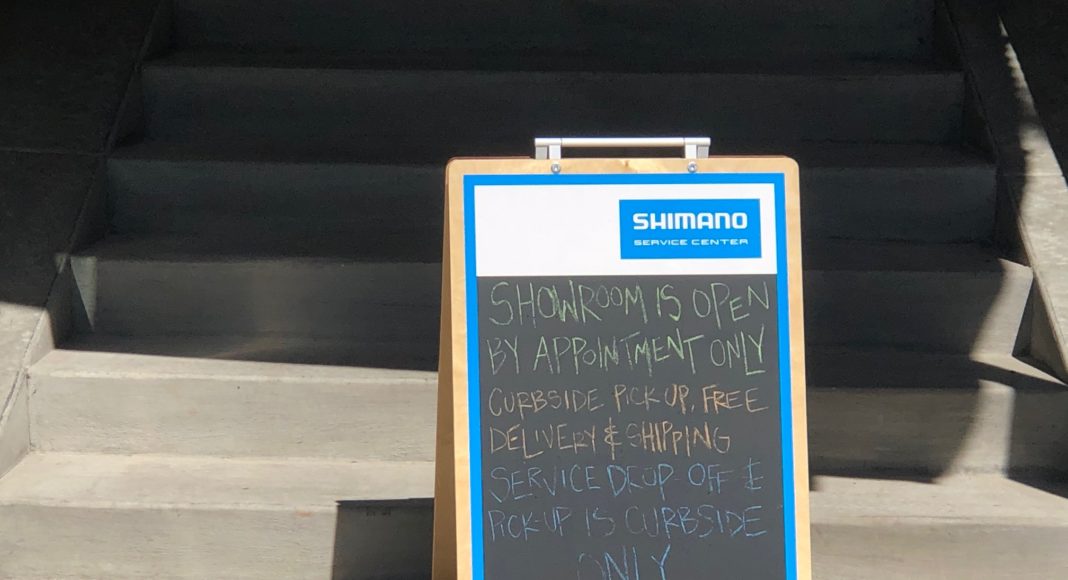 SHIMANO
SERVICE CENTER
SHOWROOM IS OPEN
BY APPOINTMENT ONLY
CURBSIDE PICK UP, FREE
DELIVERY & SHIPPING
SERVICE DROP-OFF &
PICK-UP IS CURBSIDE
ONLY